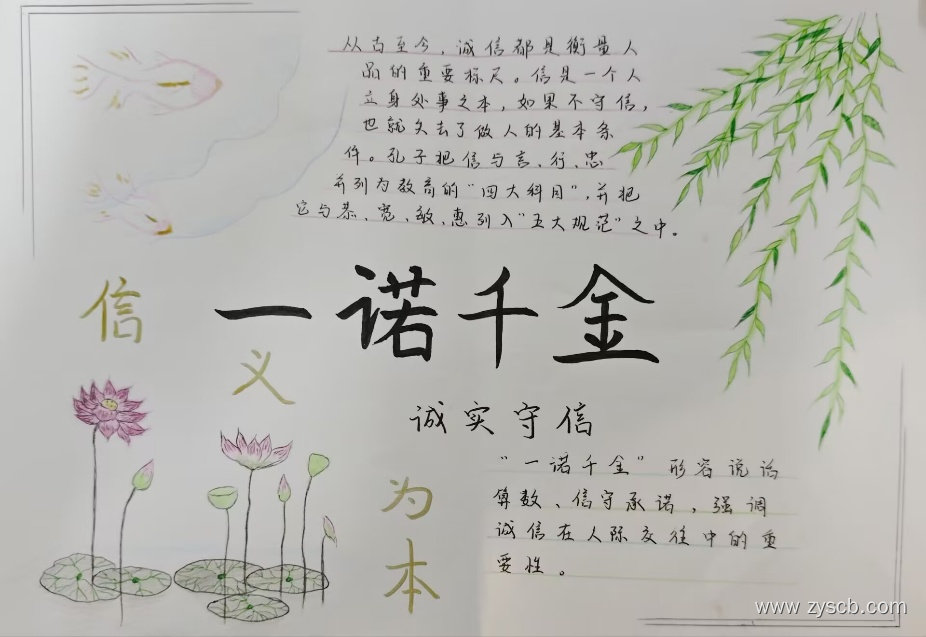 从古至今，诚信都是衡量人
品的重要标尺。信是一个人
立身处事之本，如果不守信，
也就失去了做人的基本条
件。孔子把信与言、行、忠
并列为教育的“四大科目”，并把
它与恭、宽、敏、惠列入“五大规范”之中。
信
一诺千金
义
诚实守信
“一诺千金”形容说话
算数、信守承诺，强调
诚信在人际交往中的重
要性。
为
本
www.zyscb.com